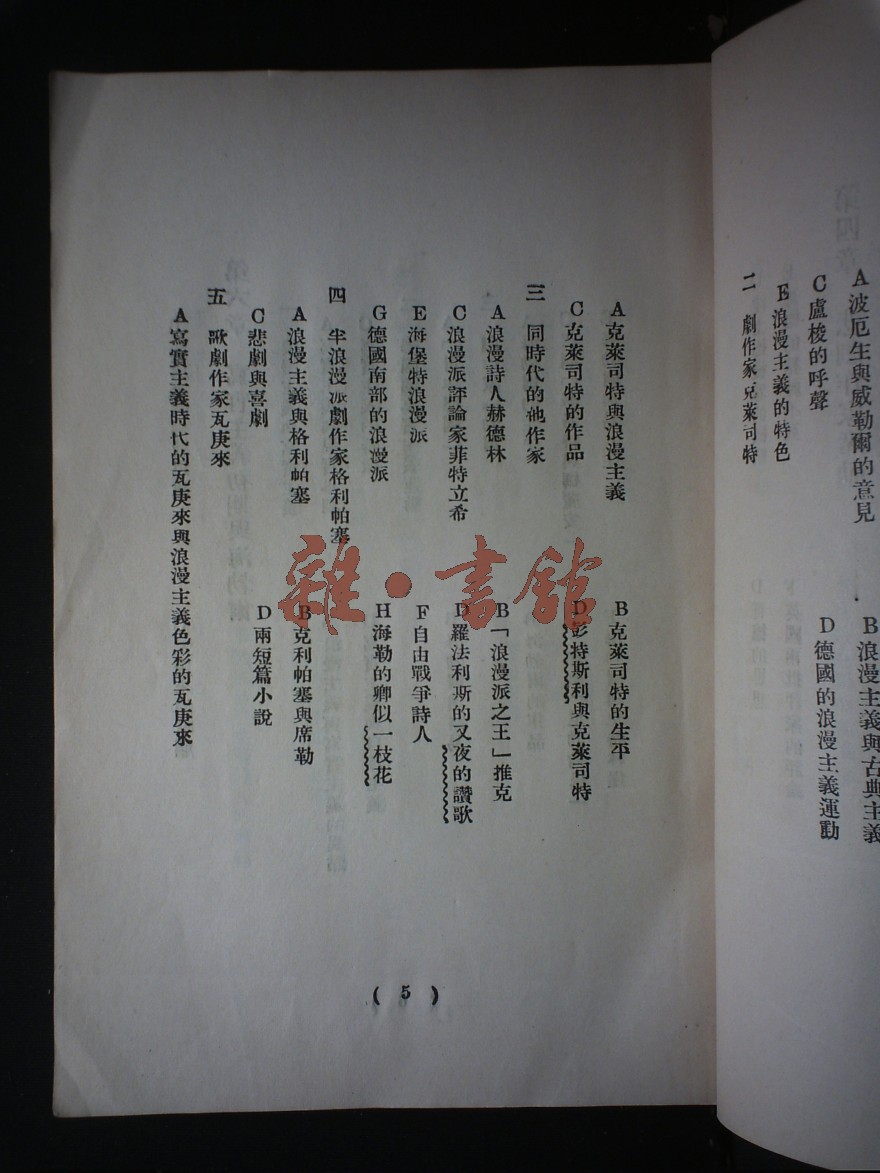 A 波厄生與威勒爾的意見
B 浪漫主義與古典主義
C 盧梭的呼聲
D 德國的浪漫主義運動
E 浪漫主義的特色
二 劇作家克萊司特
A 克萊司特與浪漫主義
B 克萊司特的生平
C 克萊司特的作品
D 彭特斯利與克萊司特
三 同時代的他作家
A 浪漫詩人赫德林
B 「浪漫派之王」推克
C 浪漫派評論家菲特立希
D 羅法利斯的又夜的讚歌
E 海堡特浪漫派
F 自由戰爭詩人
G 德國南部的浪漫派
H 海勒的卿似一枝花
四 半浪漫派劇作家格利帕塞
A 浪漫主義與格利帕塞
B 克利帕塞與席勒
C 悲劇與喜劇
D 兩短篇小說
五 歌劇作家瓦庚來
A 寫實主義時代的瓦庚來與浪漫主義色彩的瓦庚來
( 5 )
雜·書館